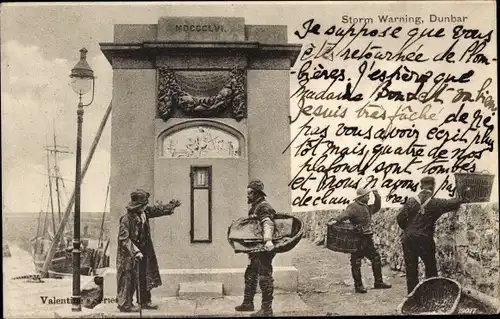 MDCCCLVI.
Storm Warning, Dunbar
Je suppose que vous
êtes retournée de Plom-
bières. J'espère que
Madame
Je suis très fâché de ne
pas vous avoir écris plus
tôt mais quatre de nos
plafonds sont tombés
et nous n'avons pas
de cham
Valentine's Series